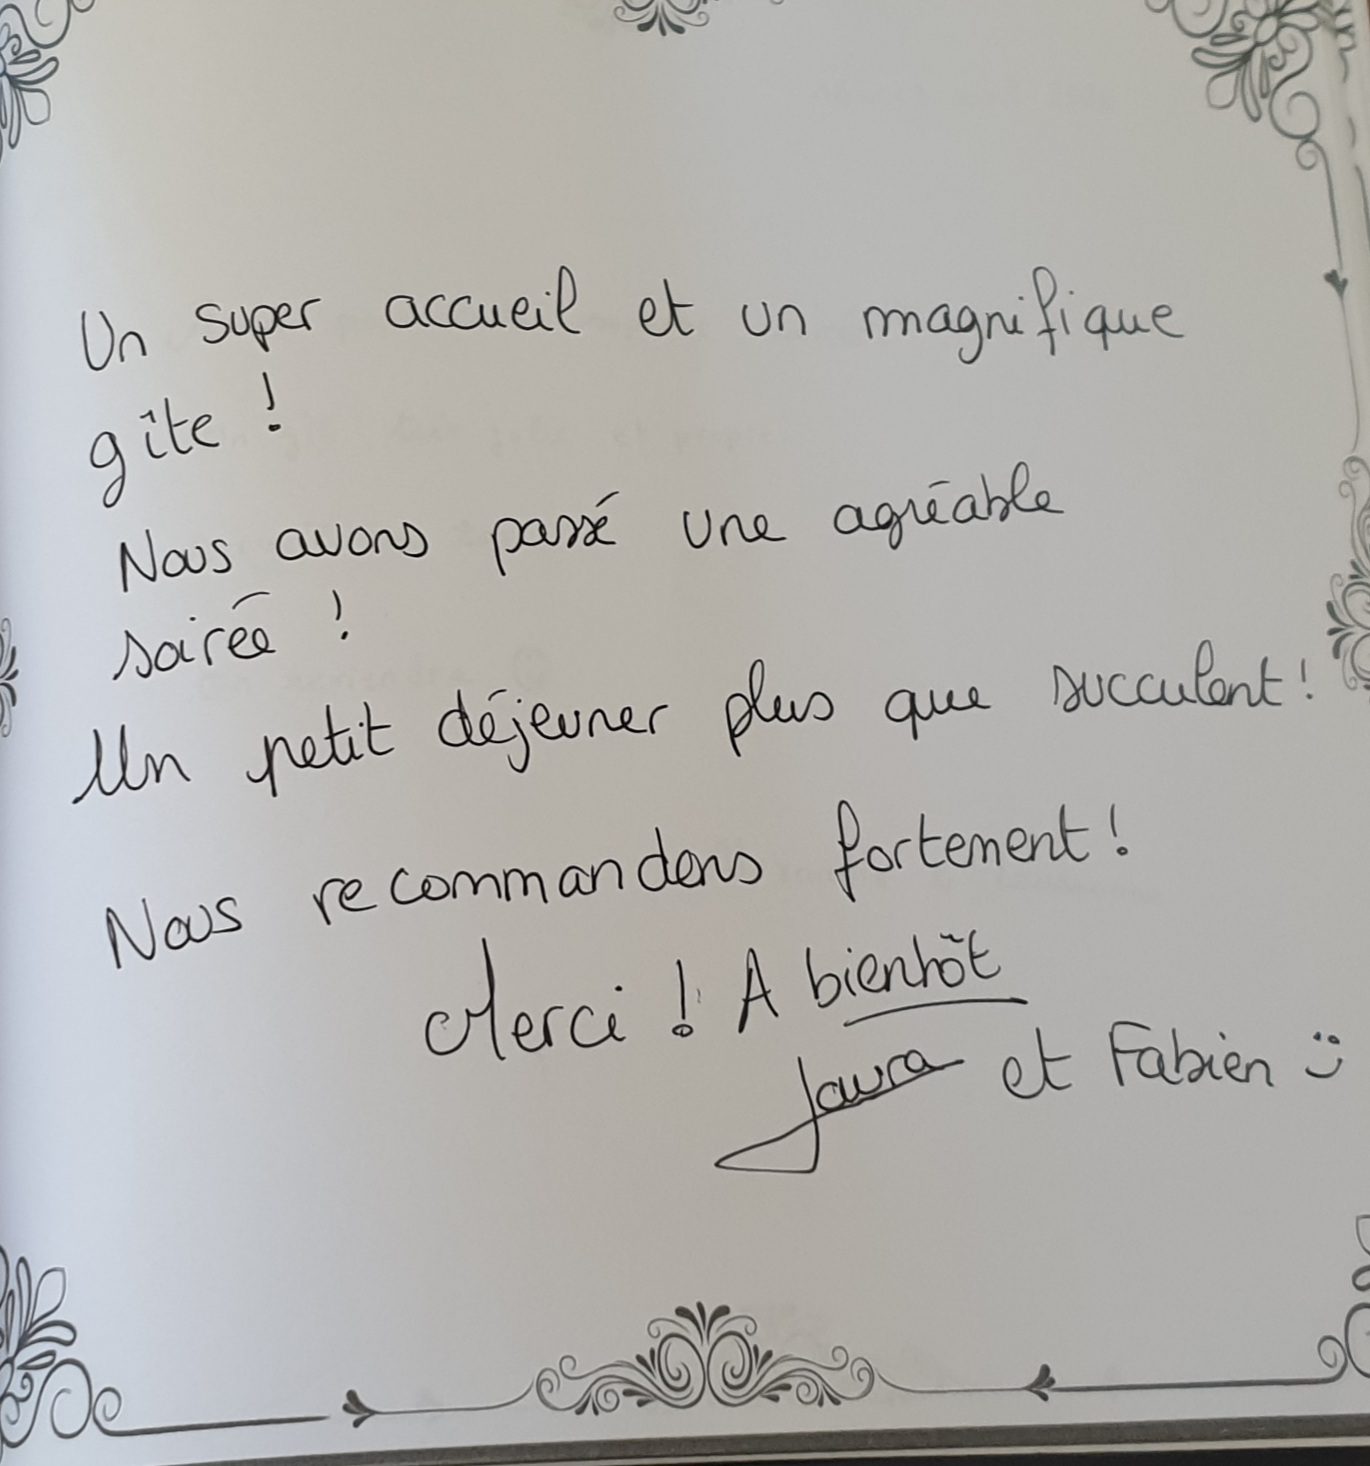 Un super accueil et un magnifique
gîte !
Nous avons passé une agréable
soirée !
Un petit déjeuner plus que succulent !
Nous recommandons fortement !
Merci ! A bientôt
Laura et Fabien :)